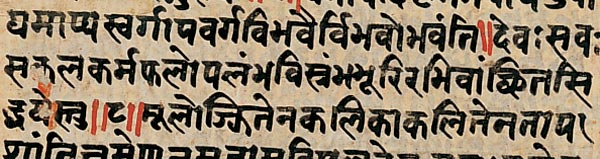 द्यमाप्यस्वर्गापवर्गविभवैर्विभवोभवंति॥देवःसवः
सकलकर्मफलोपलंभविस्रंभभूरिरभिवांछितसि
द्धयेस्तु॥८॥मूलोज्झितेनकलिकाकलितेनताप